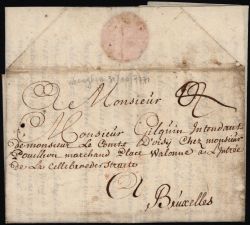 A Monsieur
Monsieur Gilquin Intendant
de monsieur Le Comte D'oisy Chez monsieur
Pouillon marchand Place Walonne a L'entrée
de La Cellebroederstraete
A
Bruxelles